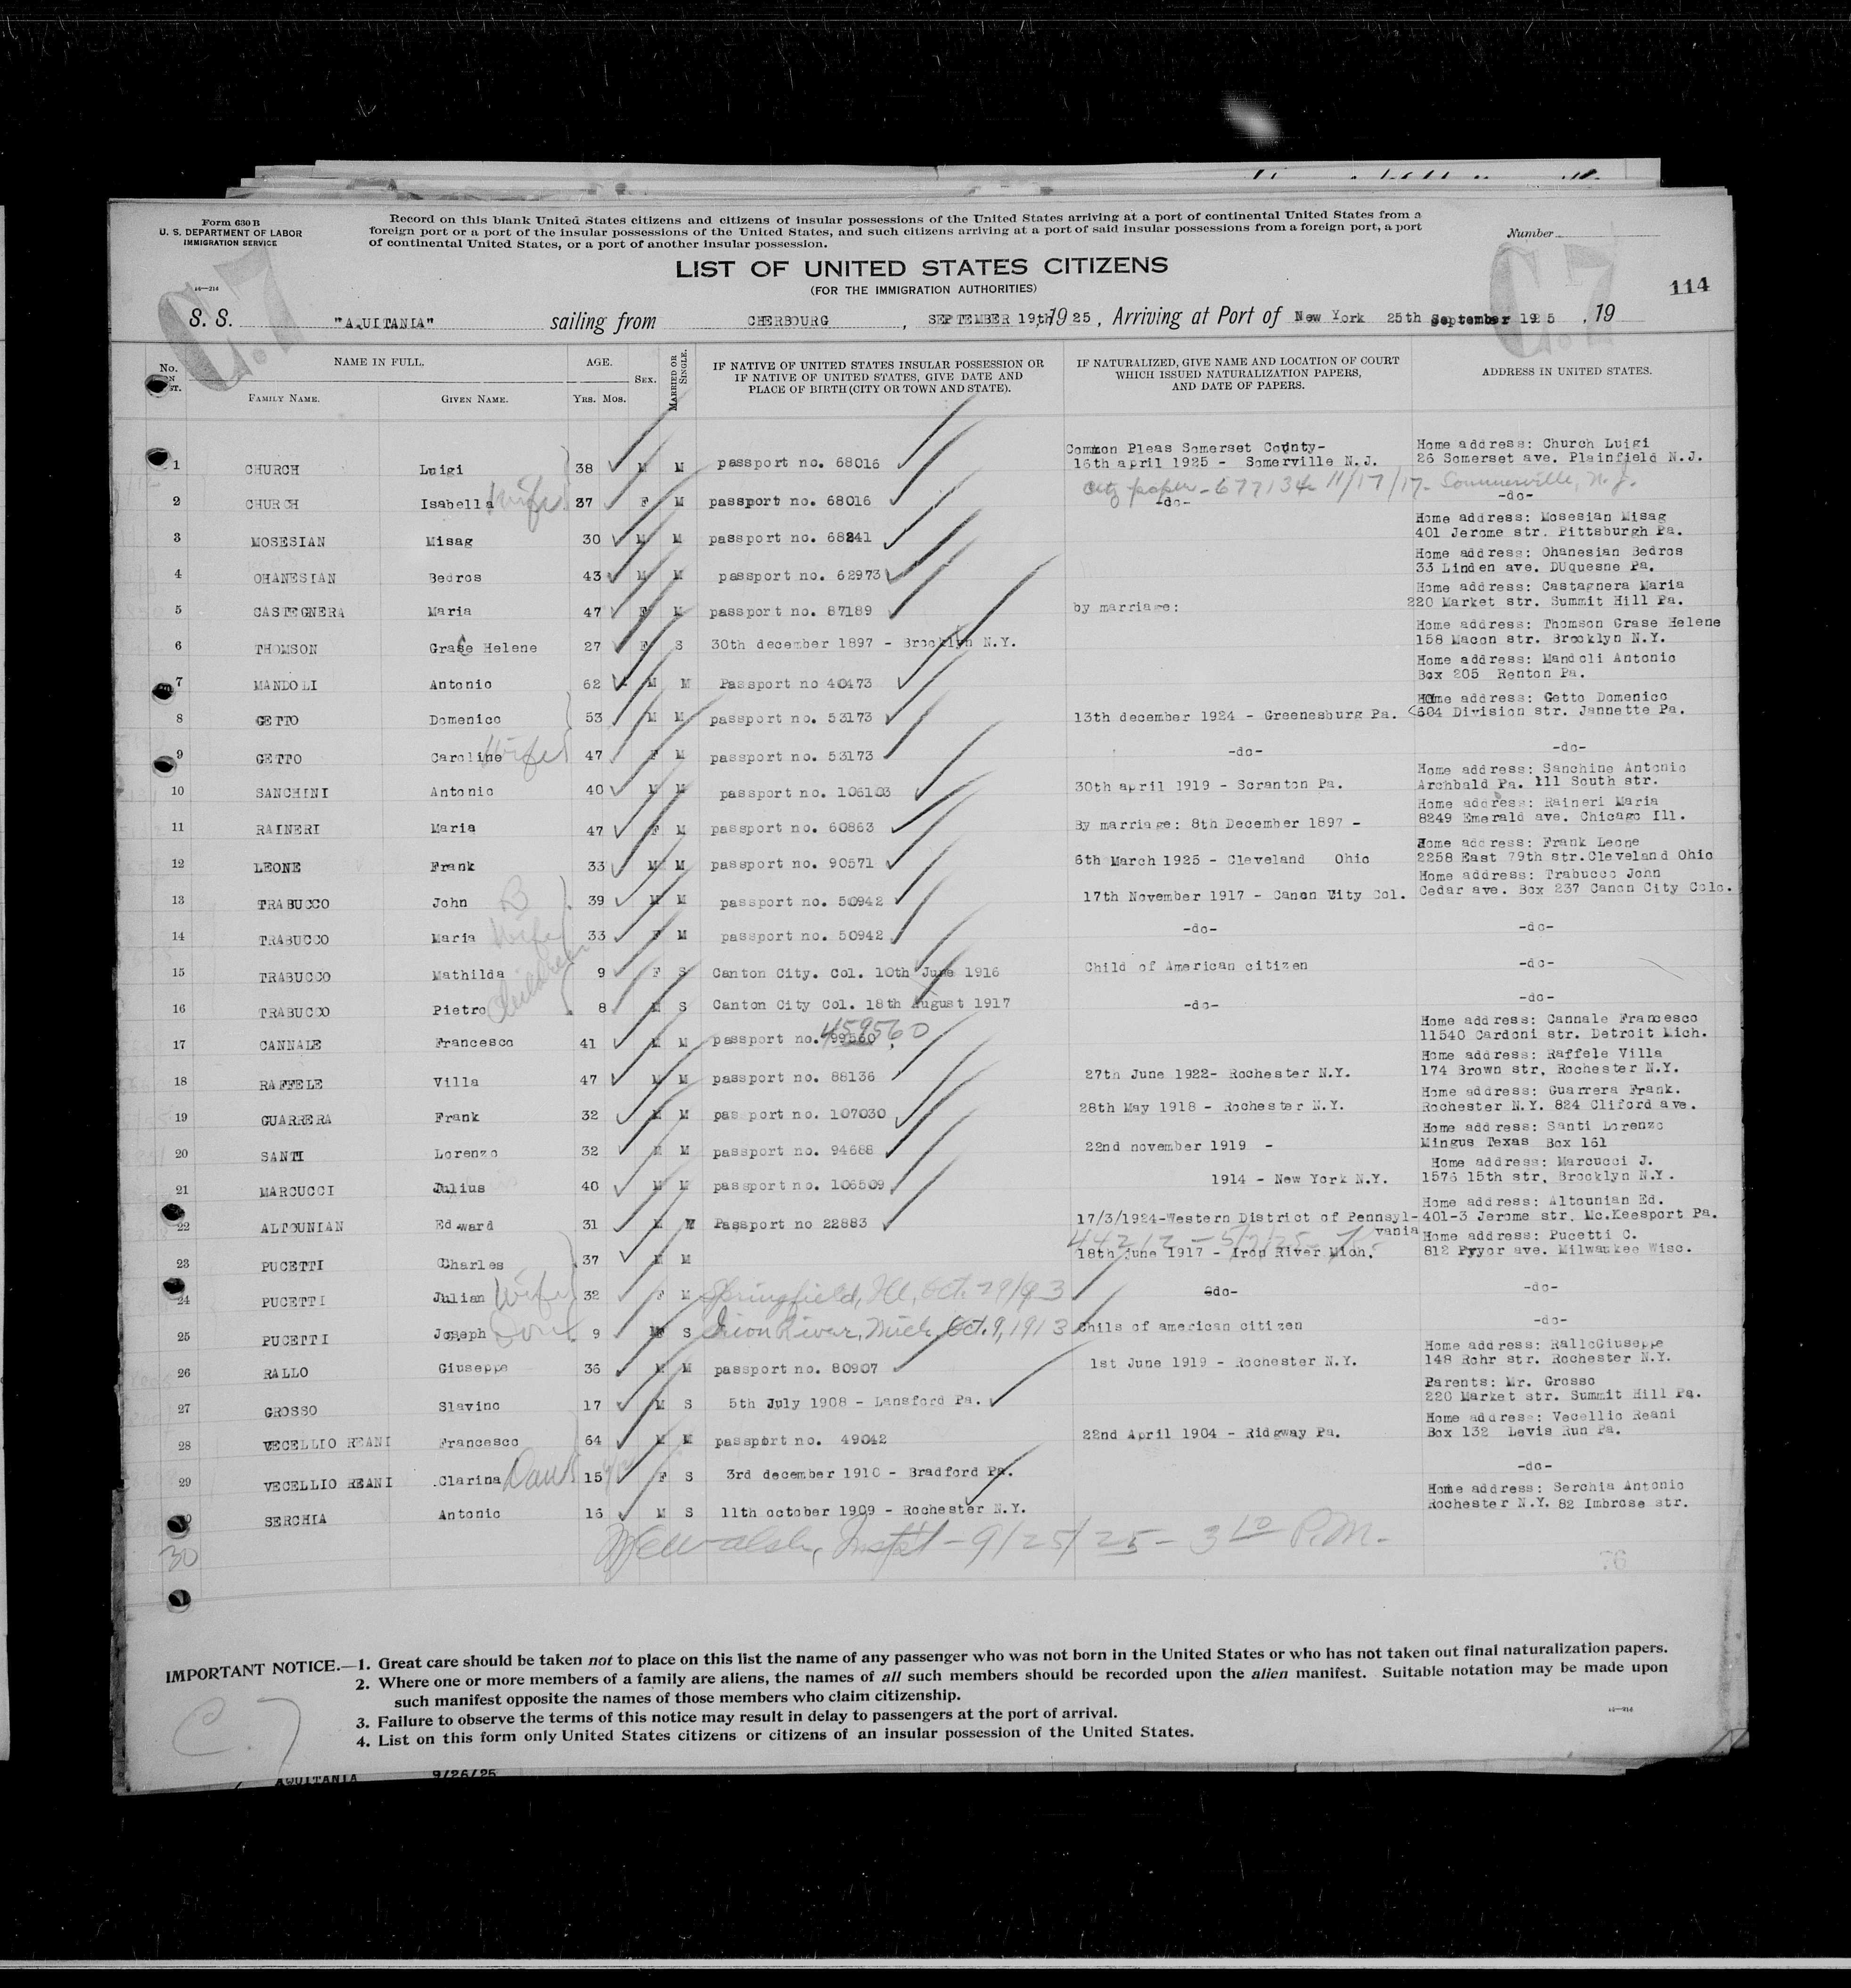 Form 630 B
U. S. DEPARTMENT OF LABOR
IMMIGRATION SERVICE
14—214
Record on this blank United States citizens and citizens of insular possessions of the United States arriving at a port of continental United States from a
foreign port or a port of the insular possessions of the United States, and such citizens arriving at a port of said insular possessions from a foreign port, a port
of continental United States, or a port of another insular possession.
Number
C.7
C.7
LIST OF UNITED STATES CITIZENS
(FOR THE IMMIGRATION AUTHORITIES)
114
S. S. "AQUITANIA" sailing from CHERBOURG , SEPTEMBER 19th, 1925 , Arriving at Port of New York 25th September 1925 , 19
No. NAME IN FULL. AGE. SEX. MARRIED OR SINGLE. IF NATIVE OF UNITED STATES INSULAR POSSESSION OR IF NATIVE OF UNITED STATES, GIVE DATE AND PLACE OF BIRTH (CITY OR TOWN AND STATE). IF NATURALIZED, GIVE NAME AND LOCATION OF COURT WHICH ISSUED NATURALIZATION PAPERS, AND DATE OF PAPERS. ADDRESS IN UNITED STATES.
FAMILY NAME. GIVEN NAME. Yrs. Mos.
Common Pleas Somerset County- Home address: Church Luigi
1 CHURCH Luigi 38 M M passport no. 68016 16th april 1925 - Somerville N.J. 26 Somerset ave. Plainfield N.J.
paper - 677134 11/17/17 - Sommerville, N.J.
2 CHURCH Isabella Wife 37 F M passport no. 68016 -do- -do-
Home address: Mosesian Misag
3 MOSESIAN Misag 30 M M passport no. 68241 401 Jerome str. Pittsburgh Pa.
Home address: Ohanesian Bedros
4 OHANESIAN Bedros 43 M M passport no. 62973 33 Linden ave. DUquesne Pa.
Home address: Castagnera Maria
5 CASTEGNERA Maria 47 F M passport no. 87189 by marriage: 220 Market str. Summit Hill Pa.
Home address: Thomson Grase Helene
6 THOMSON Grace Helene 27 F S 30th december 1897 - Brooklyn N.Y. 158 Macon str. Brooklyn N.Y.
Home address: Mandoli Antonio
7 MANDOLI Antonio 62 M M Passport no 40473 Box 205 Renton Pa.
Home address: Getto Domenico
8 GETTO Domenico 53 M M passport no. 53173 13th december 1924 - Greenesburg Pa. 604 Division str. Jannette Pa.
9 GETTO Caroline Wife 47 F M passport no. 53173 -do- -do-
Home address: Sanchine Antonio
10 SANCHINI Antonio 40 M M passport no. 106103 30th april 1919 - Scranton Pa. Archbald Pa. 111 South str.
Home address: Raineri Maria
11 RAINERI Maria 47 F M passport no. 60863 By marriage: 8th December 1897 - 8249 Emerald ave. Chicago Ill.
Home address: Frank Leone
12 LEONE Frank 33 M M passport no. 90571 6th March 1925 - Cleveland Ohio 2258 East 79th str.Cleveland Ohio
Home address: Trabucco John
13 TRABUCCO John 39 M M passport no. 50942 17th November 1917 - Canon City Col. Cedar ave. Box 237 Canon City Colo.
14 TRABUCCO Maria Wife 33 F M passport no. 50942 -do- -do-
15 TRABUCCO Mathilda children 9 F S Canton City. Col. 10th June 1916 Child of American citizen -do-
16 TRABUCCO Pietro 8 M S Canton City Col. 18th August 1917 -do- -do-
Home address: Cannale Francesco
17 CANNALE Francesco 41 M M passport no. 459560 11540 Cardoni str. Detroit Mich.
Home address: Raffele Villa
18 RAFFELE Villa 47 M M passport no. 88136 27th June 1922- Rochester N.Y. 174 Brown str. Rochester N.Y.
Home address: Guarrera Frank.
19 GUARRERA Frank 32 M M passport no. 107030 28th May 1918 - Rochester N.Y. Rochester N.Y. 824 Cliford ave.
Home address: Santi Lorenzo
20 SANTI Lorenzo 32 M M passport no. 94688 22nd november 1919 - Mingus Texas Box 161
Home address: Marcucci J.
21 MARCUCCI Julius 40 M M passport no. 106509 1914 - New York N.Y. 1576 15th str. Brooklyn N.Y.
Home address: Altounian Ed.
22 ALTOUNIAN Edward 31 M M Passport no 22883 17/3/1924-Western District of Pennsylvania 401-3 Jerome str. Mc.Keesport Pa.
Home address: Pucetti C.
23 PUCETTI Charles 37 M M 18th june 1917 - Iron River Mich. 812 Pryor ave. Milwaukee Wisc.
24 PUCETTI Julian Wife 32 F M Springfield, Ill, Oct. 29/93 -do- -do-
25 PUCETTI Joseph Son 9 M S Iron River, Mich, Oct. 9, 1913 Chils of american citizen -do-
Home address: RalloGiuseppe
26 RALLO Giuseppe 36 M M passport no. 80907 1st June 1919 - Rochester N.Y. 148 Rohr str. Rochester N.Y.
Parents: Mr. Grosso
27 GROSSO Slavino 17 M S 5th July 1908 - Lansford Pa. 220 Market str. Summit Hill Pa.
Home address: Vecellio Reani
28 VECELLIO REANI Francesco 64 M M passport no. 49042 22nd April 1904 - Ridgway Pa. Box 132 Levis Run Pa.
29 VECELLIO REANI Clarina Daut 15 F S 3rd december 1910 - Bradford Pa. -do-
Home address: Serchia Antonio
SERCHIA Antonio 16 M S 11th october 1909 - Rochester N.Y. Rochester N.Y. 82 Imbrose str.
30
Walsh, Inspt - 9/25/25 - 3 10 P.M.
76
IMPORTANT NOTICE.—1. Great care should be taken not to place on this list the name of any passenger who was not born in the United States or who has not taken out final naturalization papers.
2. Where one or more members of a family are aliens, the names of all such members should be recorded upon the alien manifest. Suitable notation may be made upon
such manifest opposite the names of those members who claim citizenship.
3. Failure to observe the terms of this notice may result in delay to passengers at the port of arrival.
4. List on this form only United States citizens or citizens of an insular possession of the United States.
14—214
C. 7
AQUITANIA 9/26/25